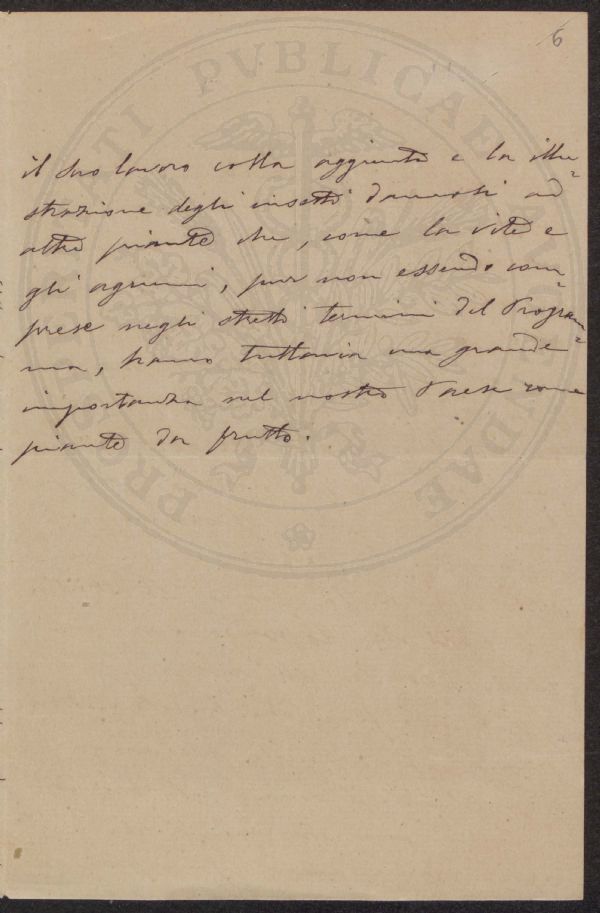 6
il suo lavoro colla aggiunta e la illu=
strazione degli insetti dannosi ad
altre piante che, come la vite e
gli agrumi, pur non essendo com=
prese negli stretti termini del Program=
ma, hanno tuttavia una grande
importanza nel nostro Paese come
piante da frutto.
PROSPERITATI PVBLICAE AVGENDAE